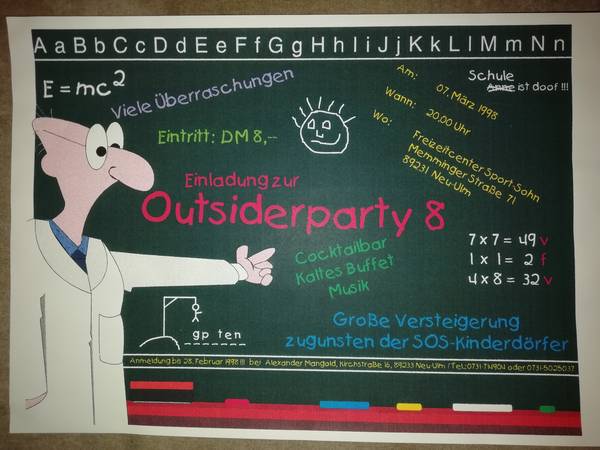 A a B b C c D d E e F f G g H h I i J j K k L l M m N n
E = mc²
Viele Überraschungen
Eintritt: DM 8,--
Am: 07. März 1998
Wann: 20.00 Uhr
Wo: Freizeitcenter Sport-Sohn
Memminger Straße 71
89231 Neu-Ulm
Schule
Anne ist doof !!!
Einladung zur
Outsiderparty 8
Cocktailbar
Kaltes Buffet
Musik
7 x 7 = 49 v
1 x 1 = 2 f
4 x 8 = 32 v
gp ten
Große Versteigerung
zugunsten der SOS-Kinderdörfer
Anmeldung bis 28. Februar 1998 !!! bei Alexander Mangold, Kirchstraße 16, 89233 Neu-Ulm / Tel.: 0731-714904 oder 0731-5025037